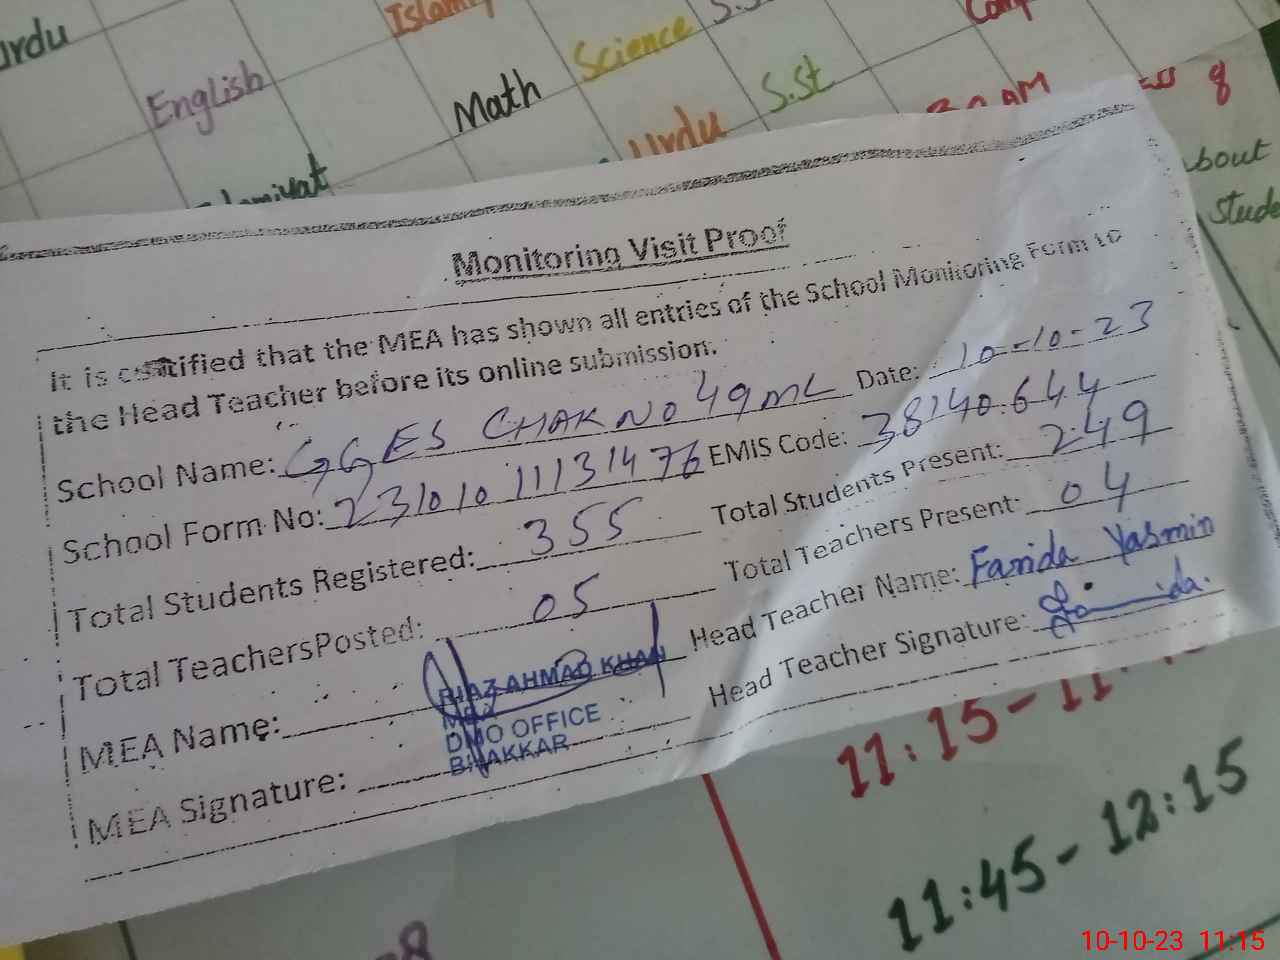 Urdu
English
Math
Science
Urdu
S.St
about
Monitoring Visit Proof
It is certified that the MEA has shown all entries of the School Monitoring Form to
the Head Teacher before its online submission.
Date: 10-10-23
School Name: GGES CHAK NO 49 ML
EMIS Code: 38140644
School Form No: 23101011131476
Total Students Present: 249
Total Students Registered: 355
Total Teachers Present: 04
Total TeachersPosted: 05
Head Teacher Name: Farida Yasmin
MEA Name: RIAZ AHMAD KHAN
MEA
DMO OFFICE
BHAKKAR
Head Teacher Signature:
MEA Signature:
11:45-12:15
10-10-23 11:15